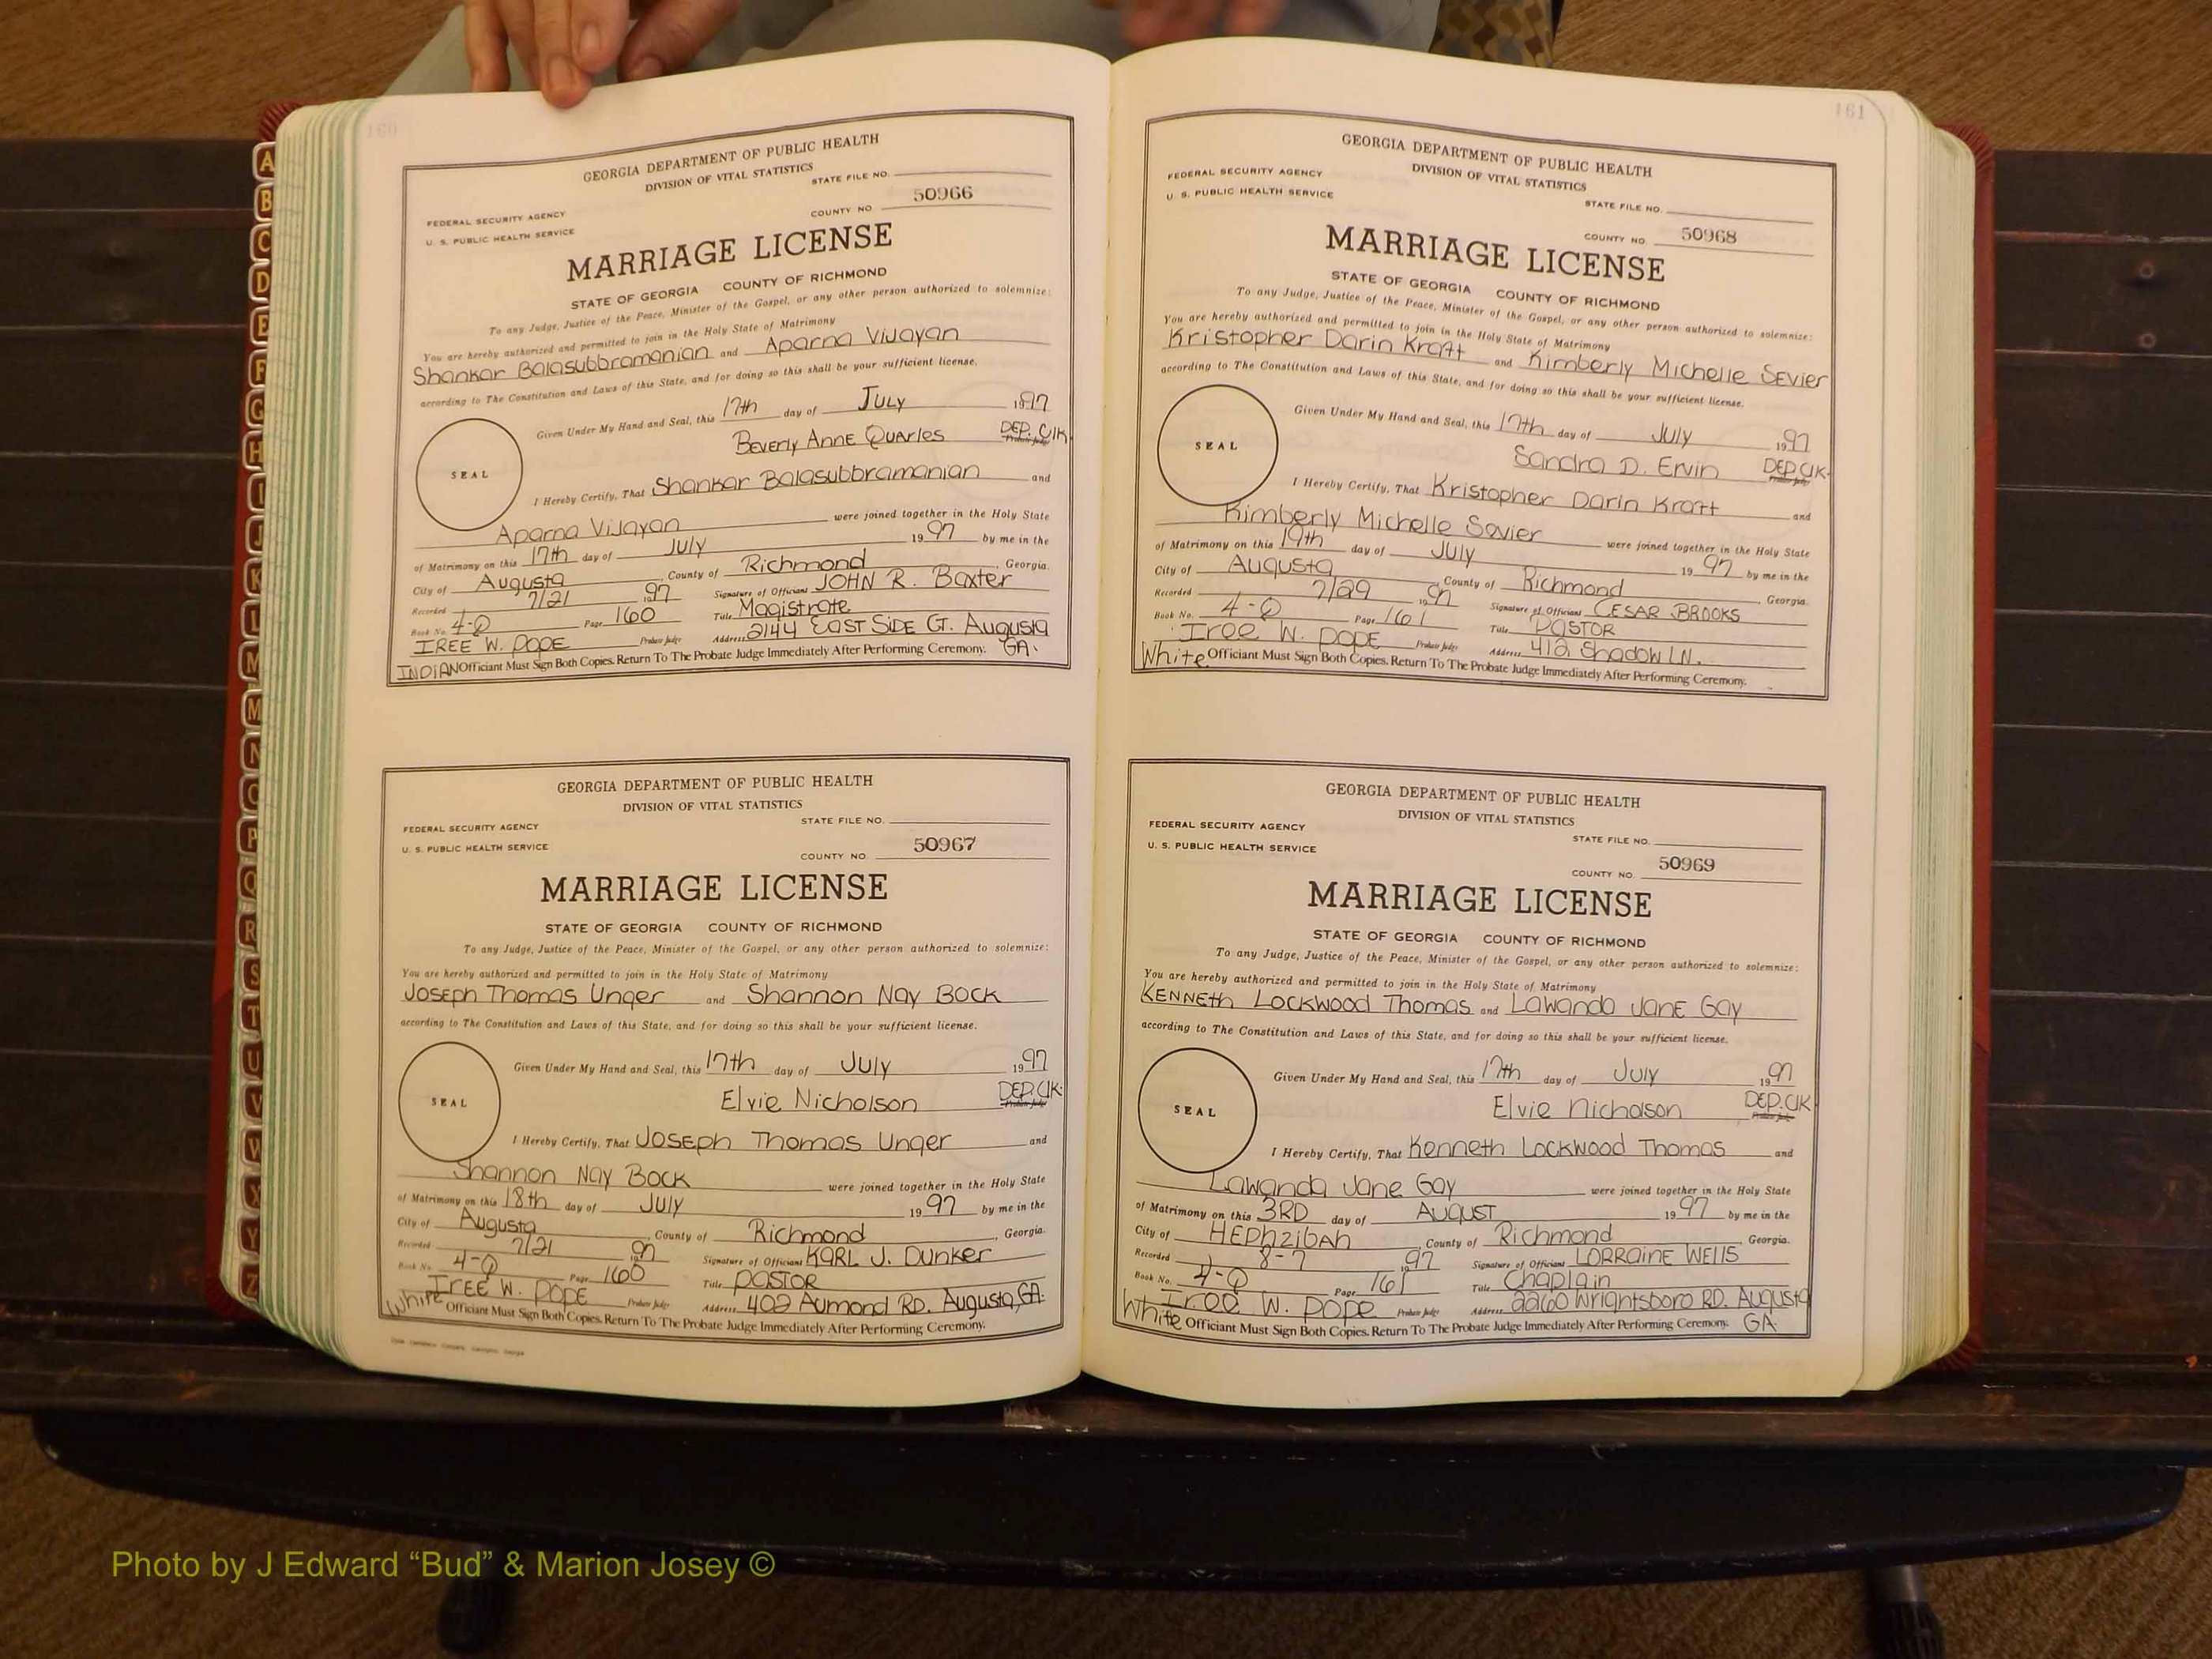 160
GEORGIA DEPARTMENT OF PUBLIC HEALTH
DIVISION OF VITAL STATISTICS
STATE FILE NO.
FEDERAL SECURITY AGENCY
COUNTY NO. 50966
U. S. PUBLIC HEALTH SERVICE
MARRIAGE LICENSE
STATE OF GEORGIA COUNTY OF RICHMOND
To any Judge, Justice of the Peace, Minister of the Gospel, or any other person authorized to solemnize:
You are hereby authorized and permitted to join in the Holy State of Matrimony
Shankar Balasubbramanian and Aparna Vijayan
according to The Constitution and Laws of this State, and for doing so this shall be your sufficient license.
Given Under My Hand and Seal, this 17th day of July 1997
Beverly Anne Quarles DEP. Clk.
Probate Judge
SEAL
I Hereby Certify, That Shankar Balasubbramanian and
Aparna Vijayan were joined together in the Holy State
of Matrimony on this 17th day of July 1997 by me in the
City of Augusta, County of Richmond, Georgia.
Recorded 7/21 1997 Signature of Officiant JOHN R. Baxter
Book No. 4-Q Page 160 Title Magistrate
IREE W. POPE Probate Judge Address 2144 EAST SIDE CT. Augusta
GA.
INDIAN Officiant Must Sign Both Copies. Return To The Probate Judge Immediately After Performing Ceremony.
GEORGIA DEPARTMENT OF PUBLIC HEALTH
DIVISION OF VITAL STATISTICS
STATE FILE NO.
FEDERAL SECURITY AGENCY
U. S. PUBLIC HEALTH SERVICE
COUNTY NO. 50967
MARRIAGE LICENSE
STATE OF GEORGIA COUNTY OF RICHMOND
To any Judge, Justice of the Peace, Minister of the Gospel, or any other person authorized to solemnize:
You are hereby authorized and permitted to join in the Holy State of Matrimony
Joseph Thomas Unger and Shannon Nay Bock
according to The Constitution and Laws of this State, and for doing so this shall be your sufficient license.
Given Under My Hand and Seal, this 17th day of July 1997
Elvie Nicholson DEP. Clk.
Probate Judge
SEAL
I Hereby Certify, That Joseph Thomas Unger and
Shannon Nay Bock were joined together in the Holy State
of Matrimony on this 18th day of July 1997 by me in the
City of Augusta, County of Richmond, Georgia.
Recorded 7/21 1997 Signature of Officiant KARL J. Dunker
Book No. 4-Q Page 160 Title PASTOR
IREE W. POPE Probate Judge Address 402 Aumond RD. Augusta, GA.
White Officiant Must Sign Both Copies. Return To The Probate Judge Immediately After Performing Ceremony.
161
GEORGIA DEPARTMENT OF PUBLIC HEALTH
DIVISION OF VITAL STATISTICS
FEDERAL SECURITY AGENCY
U. S. PUBLIC HEALTH SERVICE
STATE FILE NO.
COUNTY NO. 50968
MARRIAGE LICENSE
STATE OF GEORGIA COUNTY OF RICHMOND
To any Judge, Justice of the Peace, Minister of the Gospel, or any other person authorized to solemnize:
You are hereby authorized and permitted to join in the Holy State of Matrimony
Kristopher Darin Kratt and Kimberly Michelle Sevier
according to The Constitution and Laws of this State, and for doing so this shall be your sufficient license.
Given Under My Hand and Seal, this 17th day of July 1997
Sandra D. Ervin DEP. Clk.
Probate Judge
SEAL
I Hereby Certify, That Kristopher Darin Kratt and
Kimberly Michelle Sevier were joined together in the Holy State
of Matrimony on this 19th day of July 1997 by me in the
City of Augusta, County of Richmond, Georgia.
Recorded 7/29 1997 Signature of Officiant CESAR BROOKS
Book No. 4-Q Page 161 Title PASTOR
Iree W. POPE Probate Judge Address 412 Shadow LN.
White Officiant Must Sign Both Copies. Return To The Probate Judge Immediately After Performing Ceremony.
GEORGIA DEPARTMENT OF PUBLIC HEALTH
DIVISION OF VITAL STATISTICS
FEDERAL SECURITY AGENCY
STATE FILE NO.
U. S. PUBLIC HEALTH SERVICE
COUNTY NO. 50969
MARRIAGE LICENSE
STATE OF GEORGIA COUNTY OF RICHMOND
To any Judge, Justice of the Peace, Minister of the Gospel, or any other person authorized to solemnize:
You are hereby authorized and permitted to join in the Holy State of Matrimony
KENNETH Lockwood Thomas and Lawanda Jane Gay
according to The Constitution and Laws of this State, and for doing so this shall be your sufficient license.
Given Under My Hand and Seal, this 17th day of July 1997
Elvie Nicholson DEP. Clk
Probate Judge
SEAL
I Hereby Certify, That Kenneth Lockwood Thomas and
Lawanda Jane Gay were joined together in the Holy State
of Matrimony on this 3RD day of AUGUST 1997 by me in the
City of HEPhzibAh County of Richmond, Georgia.
Recorded 8-7 1997 Signature of Officiant LORRAINE WELLS
Book No. 4-Q Page 161 Title Chaplain
Iree W. Pope Probate Judge Address 2260 Wrightsboro RD. Augusta
GA.
White Officiant Must Sign Both Copies. Return To The Probate Judge Immediately After Performing Ceremony.
A
B
C
D
E
F
G
H
I
J
K
L
M
M
N
O
P
Q
R
S
T
U
V
W
X
Y
Z
Photo by J Edward “Bud” & Marion Josey ©